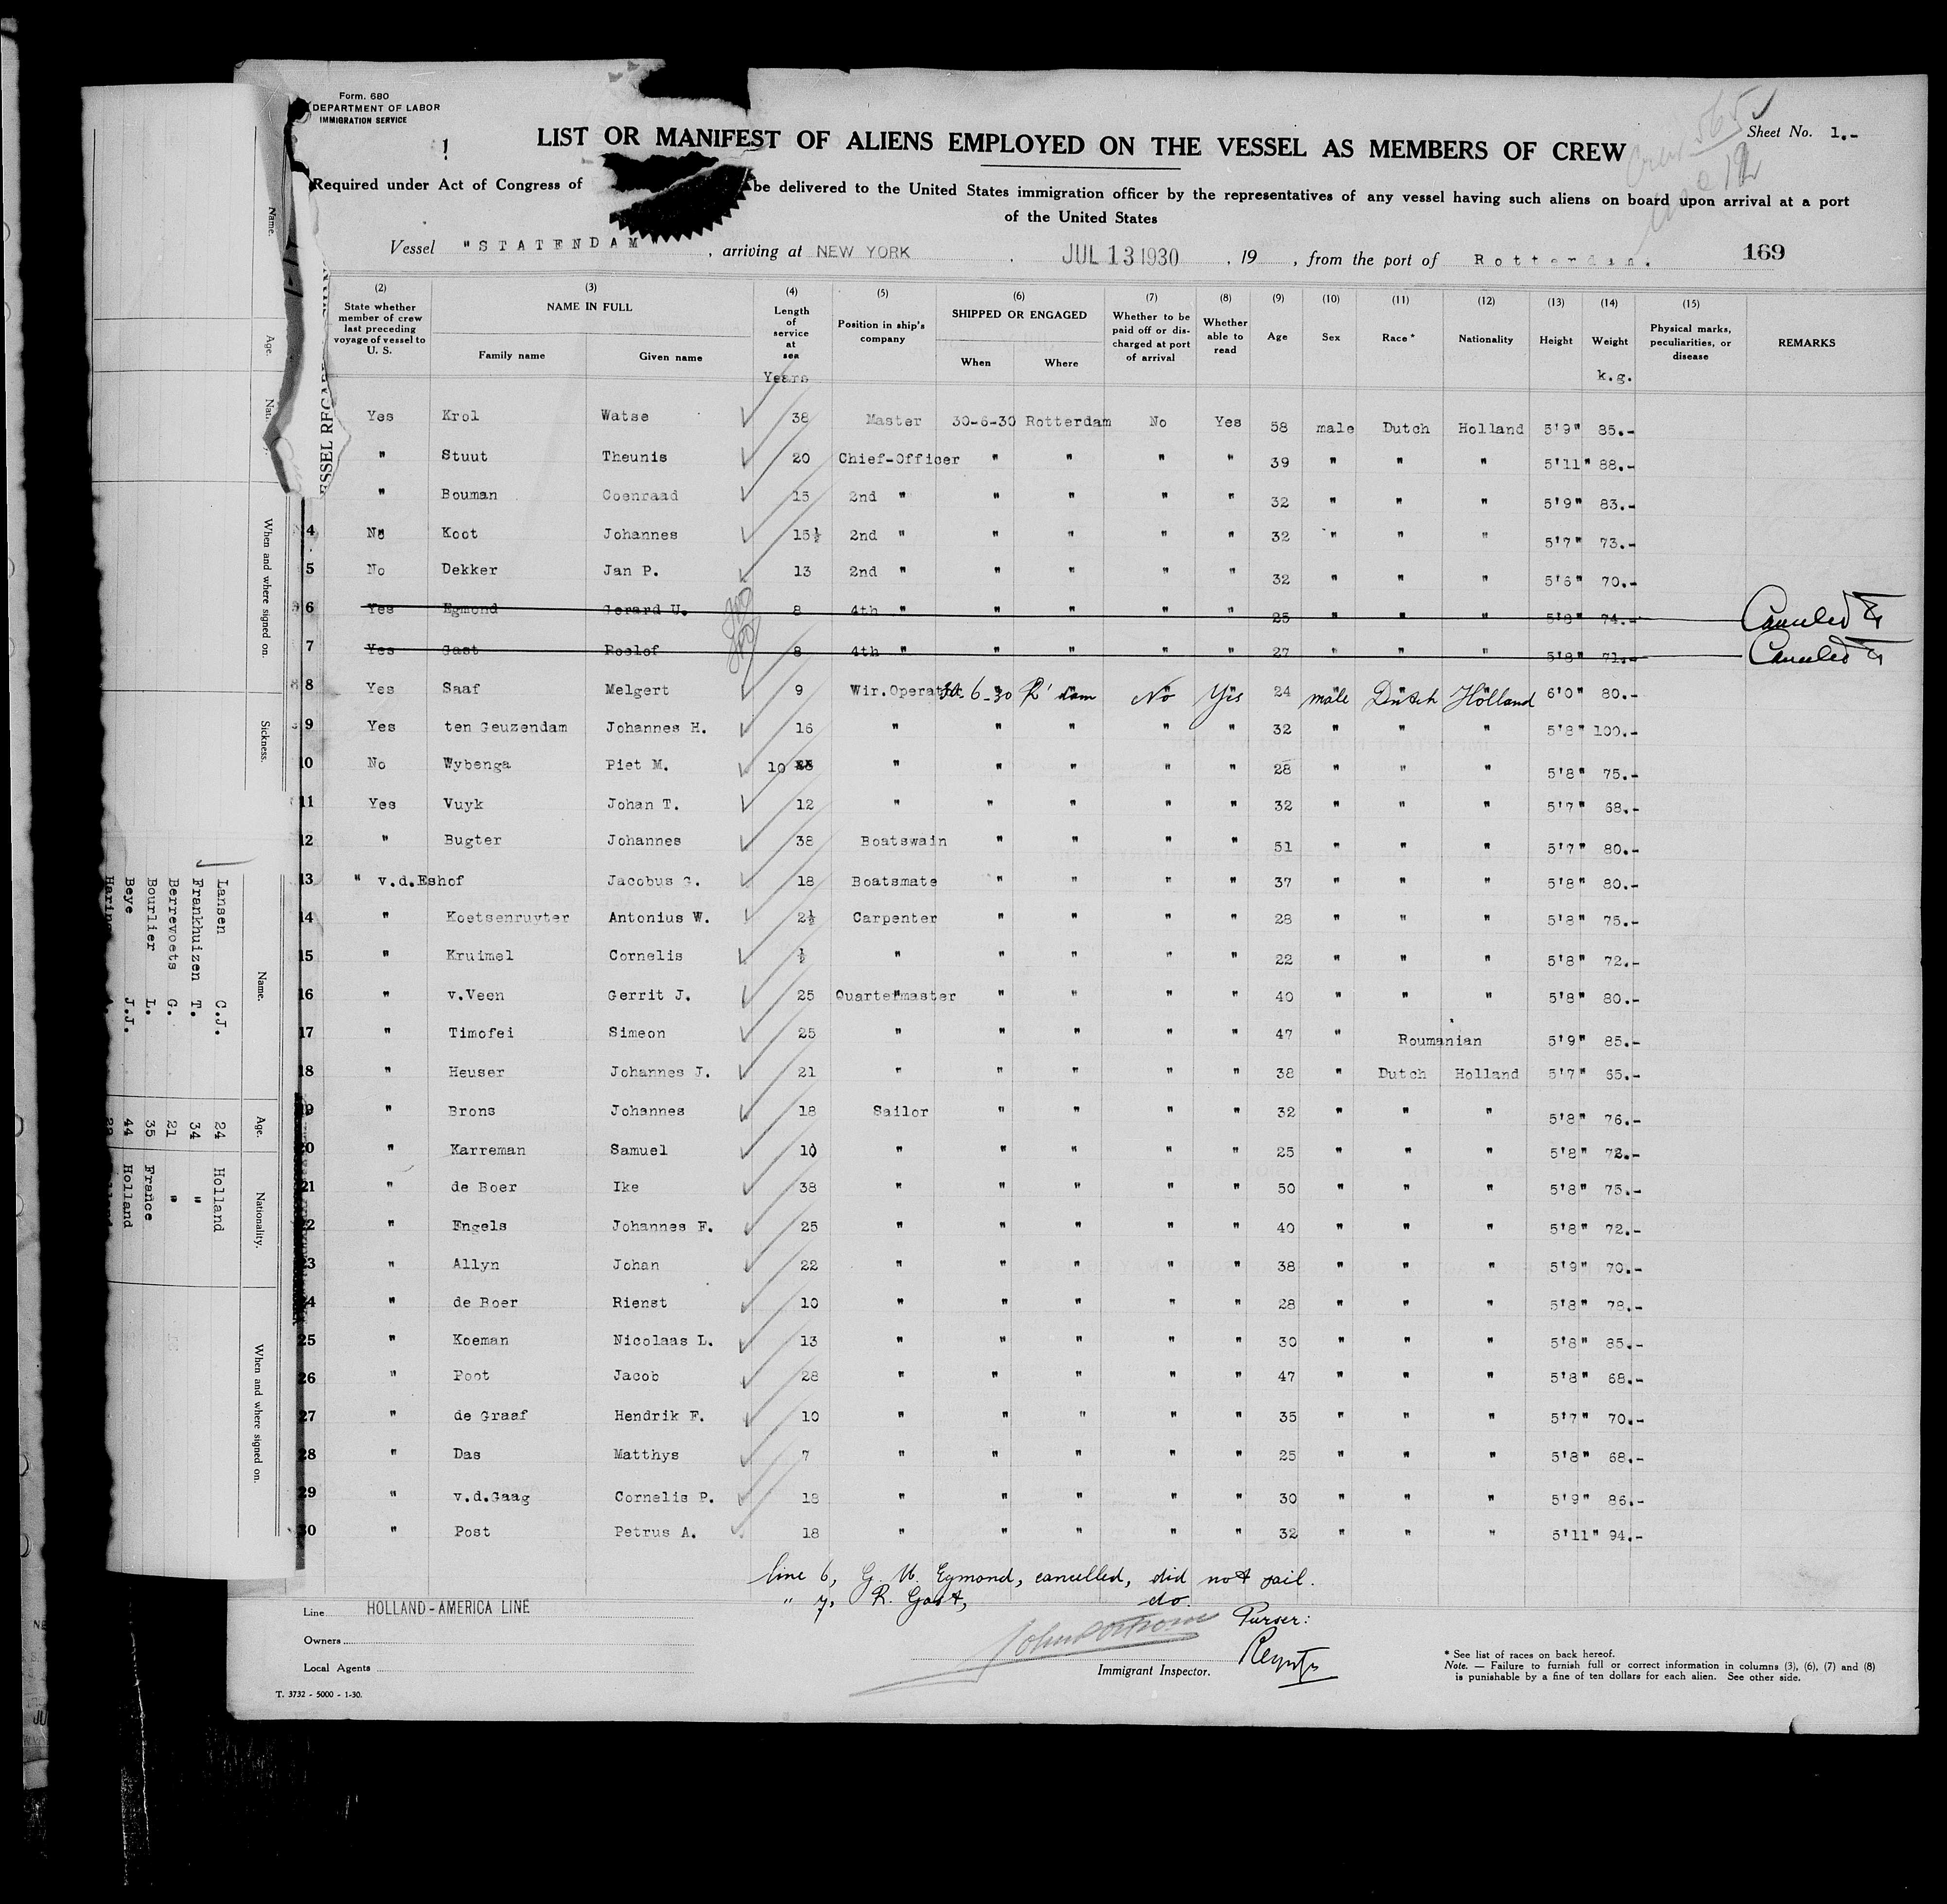 Form. 680
DEPARTMENT OF LABOR
IMMIGRATION SERVICE
LIST OR MANIFEST OF ALIENS EMPLOYED ON THE VESSEL AS MEMBERS OF CREW
Sheet No. 1.-
Required under Act of Congress of be delivered to the United States immigration officer by the representatives of any vessel having such aliens on board upon arrival at a port
of the United States
Vessel "STATENDAM", arriving at NEW YORK . JUL 13 1930 , 19 , from the port of Rotterdam. 169
(2) State whether member of crew last preceding voyage of vessel to U. S.
(3) NAME IN FULL Family name Given name
(4) Length of service at sea Years
(5) Position in ship's company
(6) SHIPPED OR ENGAGED When Where
(7) Whether to be paid off or discharged at port of arrival
(8) Whether able to read
(9) Age
(10) Sex
(11) Race*
(12) Nationality
(13) Height
(14) Weight k.g.
(15) Physical marks, peculiarities, or disease
REMARKS
Yes Krol Watse 38 Master 30-6-30 Rotterdam No Yes 58 male Dutch Holland 5'9" 85.-
" Stuut Theunis 20 Chief-Officer " " " " 39 " " " 5'11" 88.-
" Bouman Coenraad 15 2nd " " " " " 32 " " " 5'9" 83.-
4 No Koot Johannes 15½ 2nd " " " " " 32 " " " 5'7" 73.-
5 No Dekker Jan P. 13 2nd " " " " " 32 " " " 5'6" 70.-
6 Yes Egmond Gerard U. 8 4th " " " " " 25 " " " 5'8" 74.- Canceled
7 Yes Gast Roelof 8 4th " " " " " 27 " " " 5'8" 71.- Canceled
8 Yes Saaf Melgert 9 Wir.Operator 30-6-30 R'dam No Yes 24 male Dutch Holland 6'0" 80.-
9 Yes ten Geuzendam Johannes H. 16 " " " " " 32 " " " 5'8" 100.-
10 No Wybenga Piet M. 10 " " " " " 28 " " " 5'8" 75.-
11 Yes Vuyk Johan T. 12 " " " " " 32 " " " 5'7" 68.-
12 " Bugter Johannes 38 Boatswain " " " " 51 " " " 5'7" 80.-
13 " v.d.Eshof Jacobus G. 18 Boatsmate " " " " 37 " " " 5'8" 80.-
14 " Koetsenruyter Antonius W. 2½ Carpenter " " " " 28 " " " 5'8" 75.-
15 " Kruimel Cornelis ½ " " " " " 22 " " " 5'8" 72.-
16 " v.Veen Gerrit J. 25 Quartermaster " " " " 40 " " " 5'8" 80.-
17 " Timofei Simeon 25 " " " " " 47 " Roumanian 5'9" 85.-
18 " Heuser Johannes J. 21 " " " " " 38 " Dutch Holland 5'7" 65.-
19 " Brons Johannes 18 Sailor " " " " 32 " " " 5'8" 76.-
20 " Karreman Samuel 10 " " " " " 25 " " " 5'8" 72.-
21 " de Boer Ike 38 " " " " " 50 " " " 5'8" 75.-
22 " Engels Johannes F. 25 " " " " " 40 " " " 5'8" 72.-
23 " Allyn Johan 22 " " " " " 38 " " " 5'9" 70.-
24 " de Boer Rienst 10 " " " " " 28 " " " 5'8" 78.-
25 " Koeman Nicolaas L. 13 " " " " " 30 " " " 5'8" 85.-
26 " Poot Jacob 28 " " " " " 47 " " " 5'8" 68.-
27 " de Graaf Hendrik F. 10 " " " " " 35 " " " 5'7" 70.-
28 " Das Matthys 7 " " " " " 25 " " " 5'8" 68.-
29 " v.d.Gaag Cornelis P. 18 " " " " " 30 " " " 5'9" 86.-
30 " Post Petrus A. 18 " " " " " 32 " " " 5'11" 94.-
line 6, G. U. Egmond, cancelled, did not sail.
" 7, R. Gast, do.
Purser:
Line HOLLAND-AMERICA LINE
Owners
Local Agents
Immigrant Inspector.
* See list of races on back hereof.
Note. — Failure to furnish full or correct information in columns (3), (6), (7) and (8)
is punishable by a fine of ten dollars for each alien. See other side.
T. 3732 - 5000 - 1-30.
Name. Age. When and where signed on. Sickness.
Name. Age. Nationality. When and where signed on.
Lansen C.J. 24 Holland
Frankhuizen T. 34 "
Berrevoets G. 21 "
Bourlier L. 35 France
Beye J.J. 44 Holland